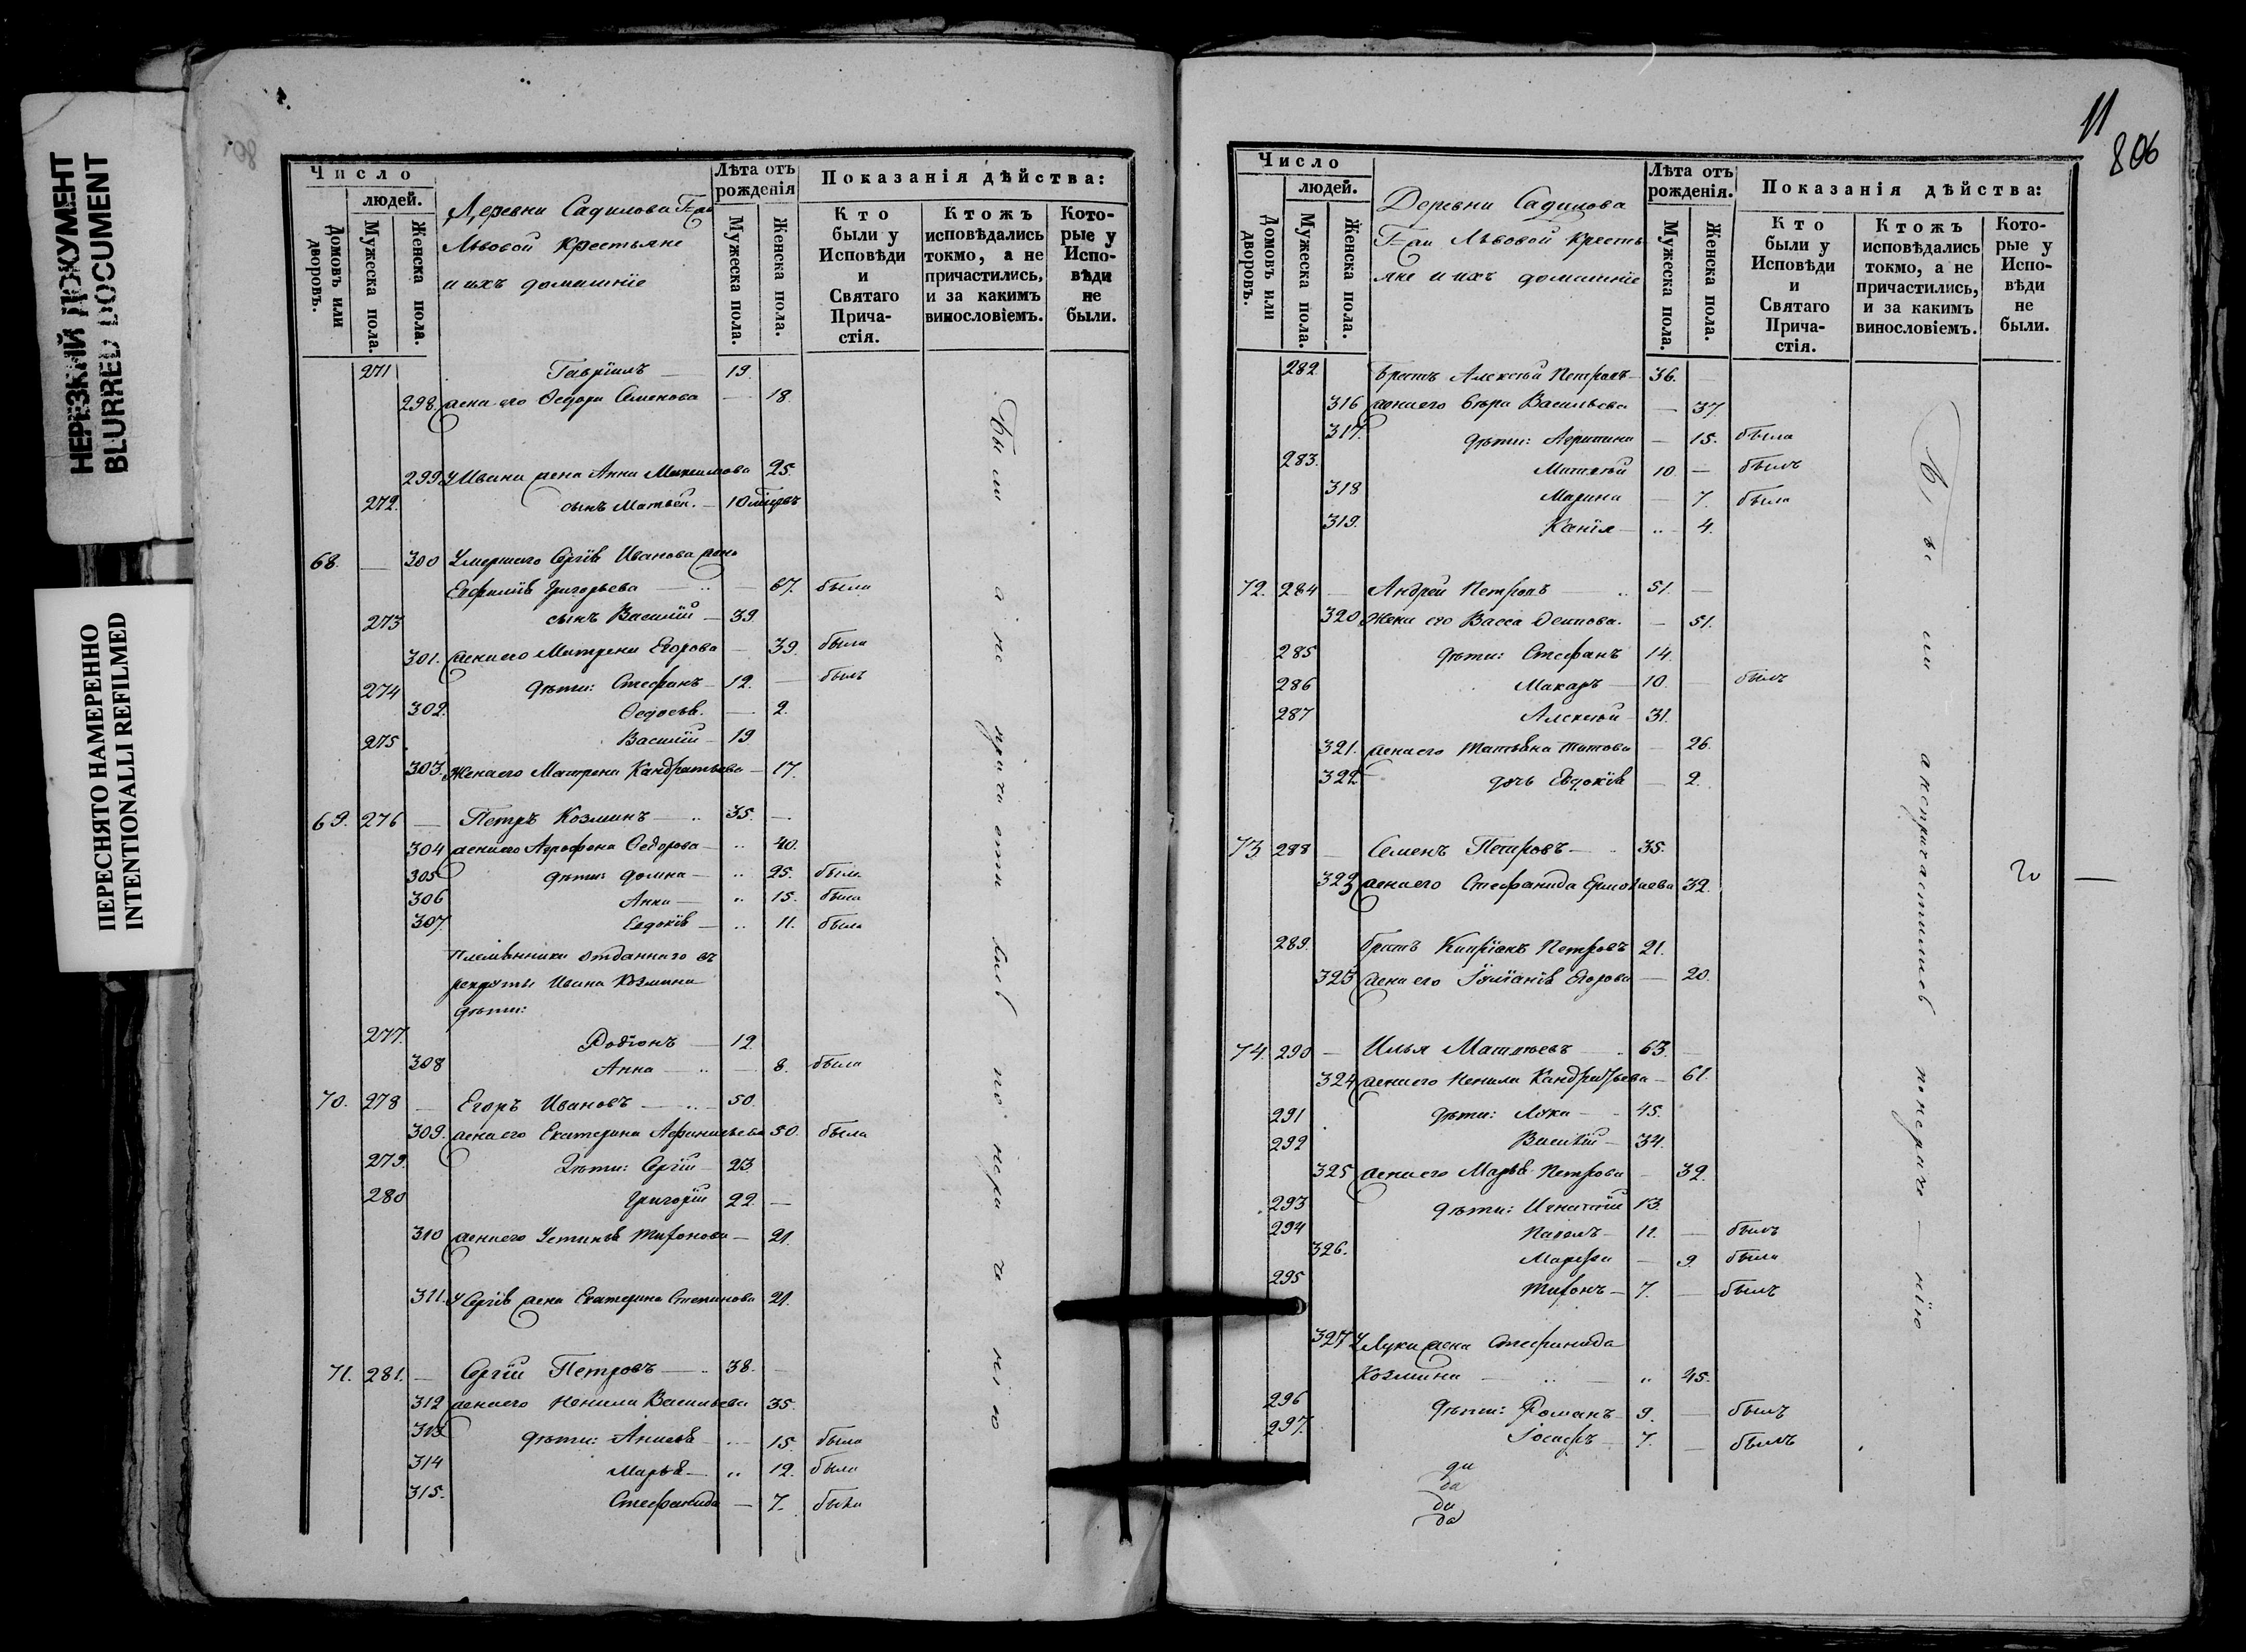 НЕРЕЗКИЙ ДОКУМЕНТ
BLURRED DOCUMENT
ПЕРЕСНЯТО НАМЕРЕННО
INTENTIONALLI REFILMED
Число
людей.
Домовъ или дворовъ.
Мужеска пола.
Женска пола.
Деревни Садилова Г=жи
Львовой Крестьяне
и ихъ домашнiе
Лѣта отъ рожденiя
Мужеска пола.
Женска пола.
Показанiя дѣйства:
Кто были у Исповѣди и Святаго Прича- стiя.
Ктожъ исповѣдались токмо, а не причастились, и за какимъ винословiемъ.
Кото- рые у Испо- вѣди не были.
271 Гаврiилъ — 19.
298. жена его Ѳедора Семенова — 18.
299. У Ивана жена Анна Максимова 25.
272. сынъ Матвѣй. — 10
68. — 300 Умершаго Сергiя Иванова жена
Евфимiя Григорьева — 67. была
273 сынъ Василiй — 39.
301. жена его Матрена Егорова — 39. была
274 дѣти: Стефанъ — 12. — былъ
302. Ѳедосья. — 2.
275 Василiй — 19
303. Жена его Матрена Кандратьева — 17.
69. 276 — Петръ Козминъ — 35. —
304 жена его Агрофена Ѳедорова — 40.
305 дѣти: Домна — 25. была
306 Анна — 15. была
307. Евдокiя — 11. была
Племянники отданнаго въ
рекруты Ивана Козмина
дѣти:
277. Родiонъ — 12.
308 Анна — 8. была
70. 278 — Егоръ Ивановъ — 50.
309. жена его Екатерина Афанасьева 50. была
279. Дѣти: Сергiй — 23
280 Григорiй 22. —
310 жена его Устинья Тифонова — 21.
311. У Сергiя жена Екатерина Степанова 21.
71. 281. — Сергiй Петровъ — 38. —
312 жена его Ненила Васильева 35.
313 дѣти: Анисья — 15. была
314 Марья — 12. была
315. Стефанида — 7. была
Были а не причастились по нера че нiю
11
806
Число
людей.
Домовъ или дворовъ.
Мужеска пола.
Женска пола.
Деревни Садилова
Г=жи Львовой Кресть
яне и ихъ домашнiе
Лѣта отъ рожденiя.
Мужеска пола.
Женска пола.
Показанiя дѣйства:
Кто были у Исповѣди и Святаго Прича- стiя.
Ктожъ исповѣдались токмо, а не причастились, и за какимъ винословiемъ.
Кото- рые у Испо- вѣди не были.
282. Братъ Алексѣй Петровъ — 36. —
316 жена его Вѣра Васильева — 37
317. дѣти: Агрипина — 15. была
283. Матвѣй 10 — былъ
318 Марина — 7. была
319. Ксенiя — 4.
72. 284 — Андрей Петровъ — 51. —
320. Жена его Васса Осипова. — 51.
285 дѣти: Стефанъ 14.
286 Макаръ — 10. — былъ
287 Алексѣй — 31.
321. жена его Татьяна Титова — 26.
322 дочь Евдокiя — 2.
73. 288 — Семенъ Петровъ — 35.
323 жена его Стефанида Ермолаева 32.
289. братъ Кипрiянъ Петровъ 21.
323 жена его Iулiанiя Егорова — 20.
74. 290 — Илья Матвѣевъ — 63. —
324 жена его Ненила Кандратьева — 61.
291 дѣти: Лука — 45.
292 Василiй — 34.
325 жена его Марья Петрова — 32.
293 дѣти: Игнатiй 13.
294 Павелъ — 11. — былъ
326. Марфа — 9. была
295 Тифонъ — 7. — былъ
327 У Луки жена Стефанида
Козмина — 45.
296 дѣти: Романъ — 9. — былъ
297. Iосифъ — 7. — былъ
Были а не причастились по нераче — нiю